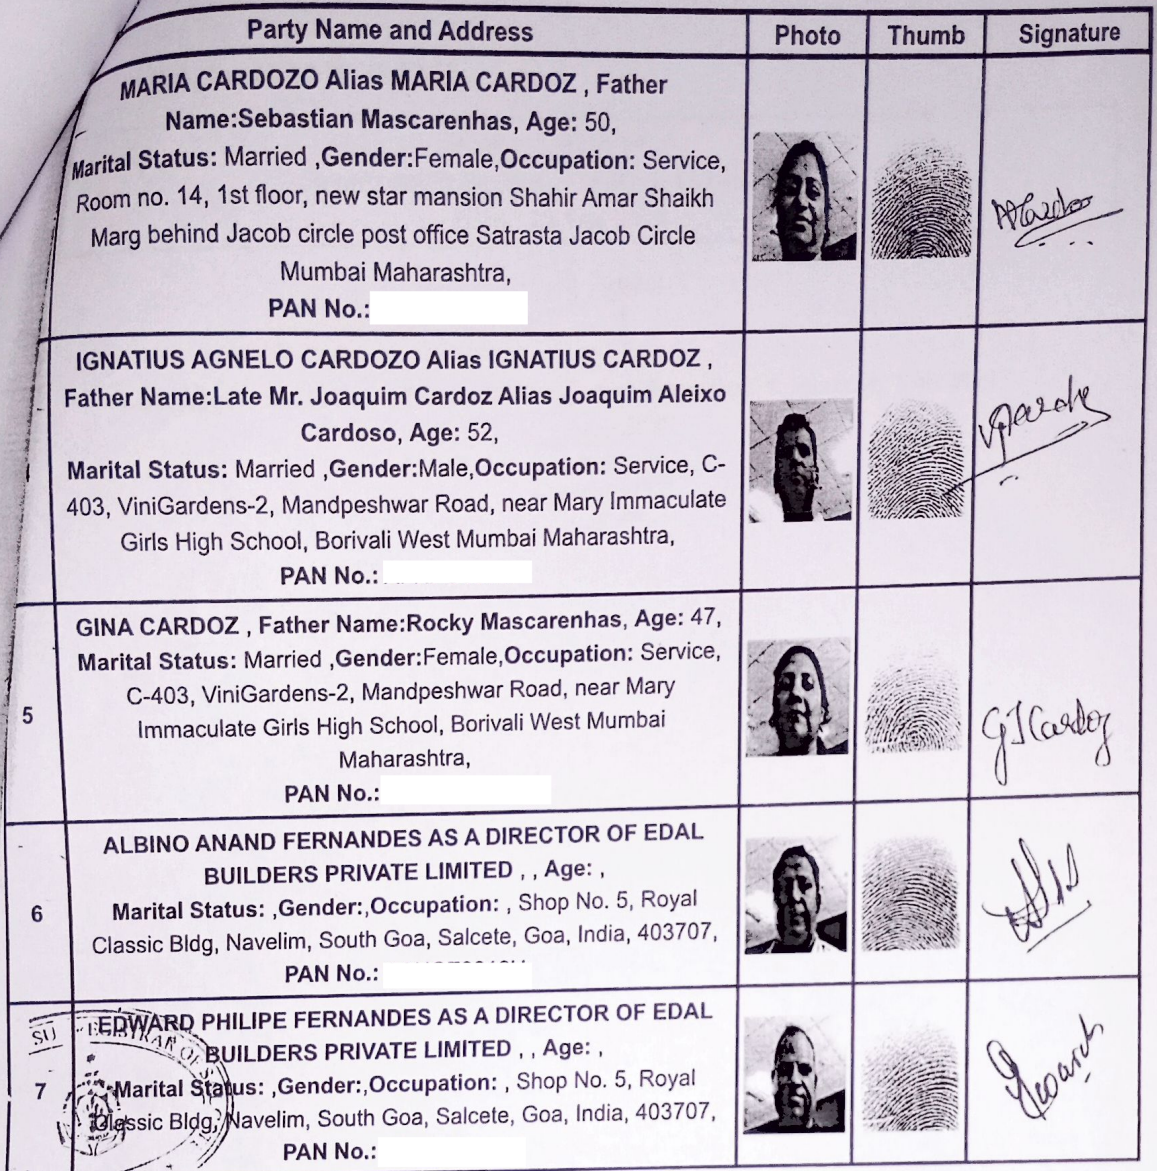 Party Name and Address Photo Thumb Signature
MARIA CARDOZO Alias MARIA CARDOZ , Father
Name:Sebastian Mascarenhas, Age: 50,
Marital Status: Married ,Gender:Female,Occupation: Service,
Room no. 14, 1st floor, new star mansion Shahir Amar Shaikh
Marg behind Jacob circle post office Satrasta Jacob Circle
Mumbai Maharashtra,
PAN No.:
IGNATIUS AGNELO CARDOZO Alias IGNATIUS CARDOZ ,
Father Name:Late Mr. Joaquim Cardoz Alias Joaquim Aleixo
Cardoso, Age: 52,
Marital Status: Married ,Gender:Male,Occupation: Service, C-
403, ViniGardens-2, Mandpeshwar Road, near Mary Immaculate
Girls High School, Borivali West Mumbai Maharashtra,
PAN No.:
5
GINA CARDOZ , Father Name:Rocky Mascarenhas, Age: 47,
Marital Status: Married ,Gender:Female,Occupation: Service,
C-403, ViniGardens-2, Mandpeshwar Road, near Mary
Immaculate Girls High School, Borivali West Mumbai
Maharashtra,
PAN No.:
GJCardoz
6
ALBINO ANAND FERNANDES AS A DIRECTOR OF EDAL
BUILDERS PRIVATE LIMITED , , Age: ,
Marital Status: ,Gender:,Occupation: , Shop No. 5, Royal
Classic Bldg, Navelim, South Goa, Salcete, Goa, India, 403707,
PAN No.:
7
EDWARD PHILIPE FERNANDES AS A DIRECTOR OF EDAL
BUILDERS PRIVATE LIMITED , , Age: ,
Marital Status: ,Gender:,Occupation: , Shop No. 5, Royal
Classic Bldg, Navelim, South Goa, Salcete, Goa, India, 403707,
PAN No.: